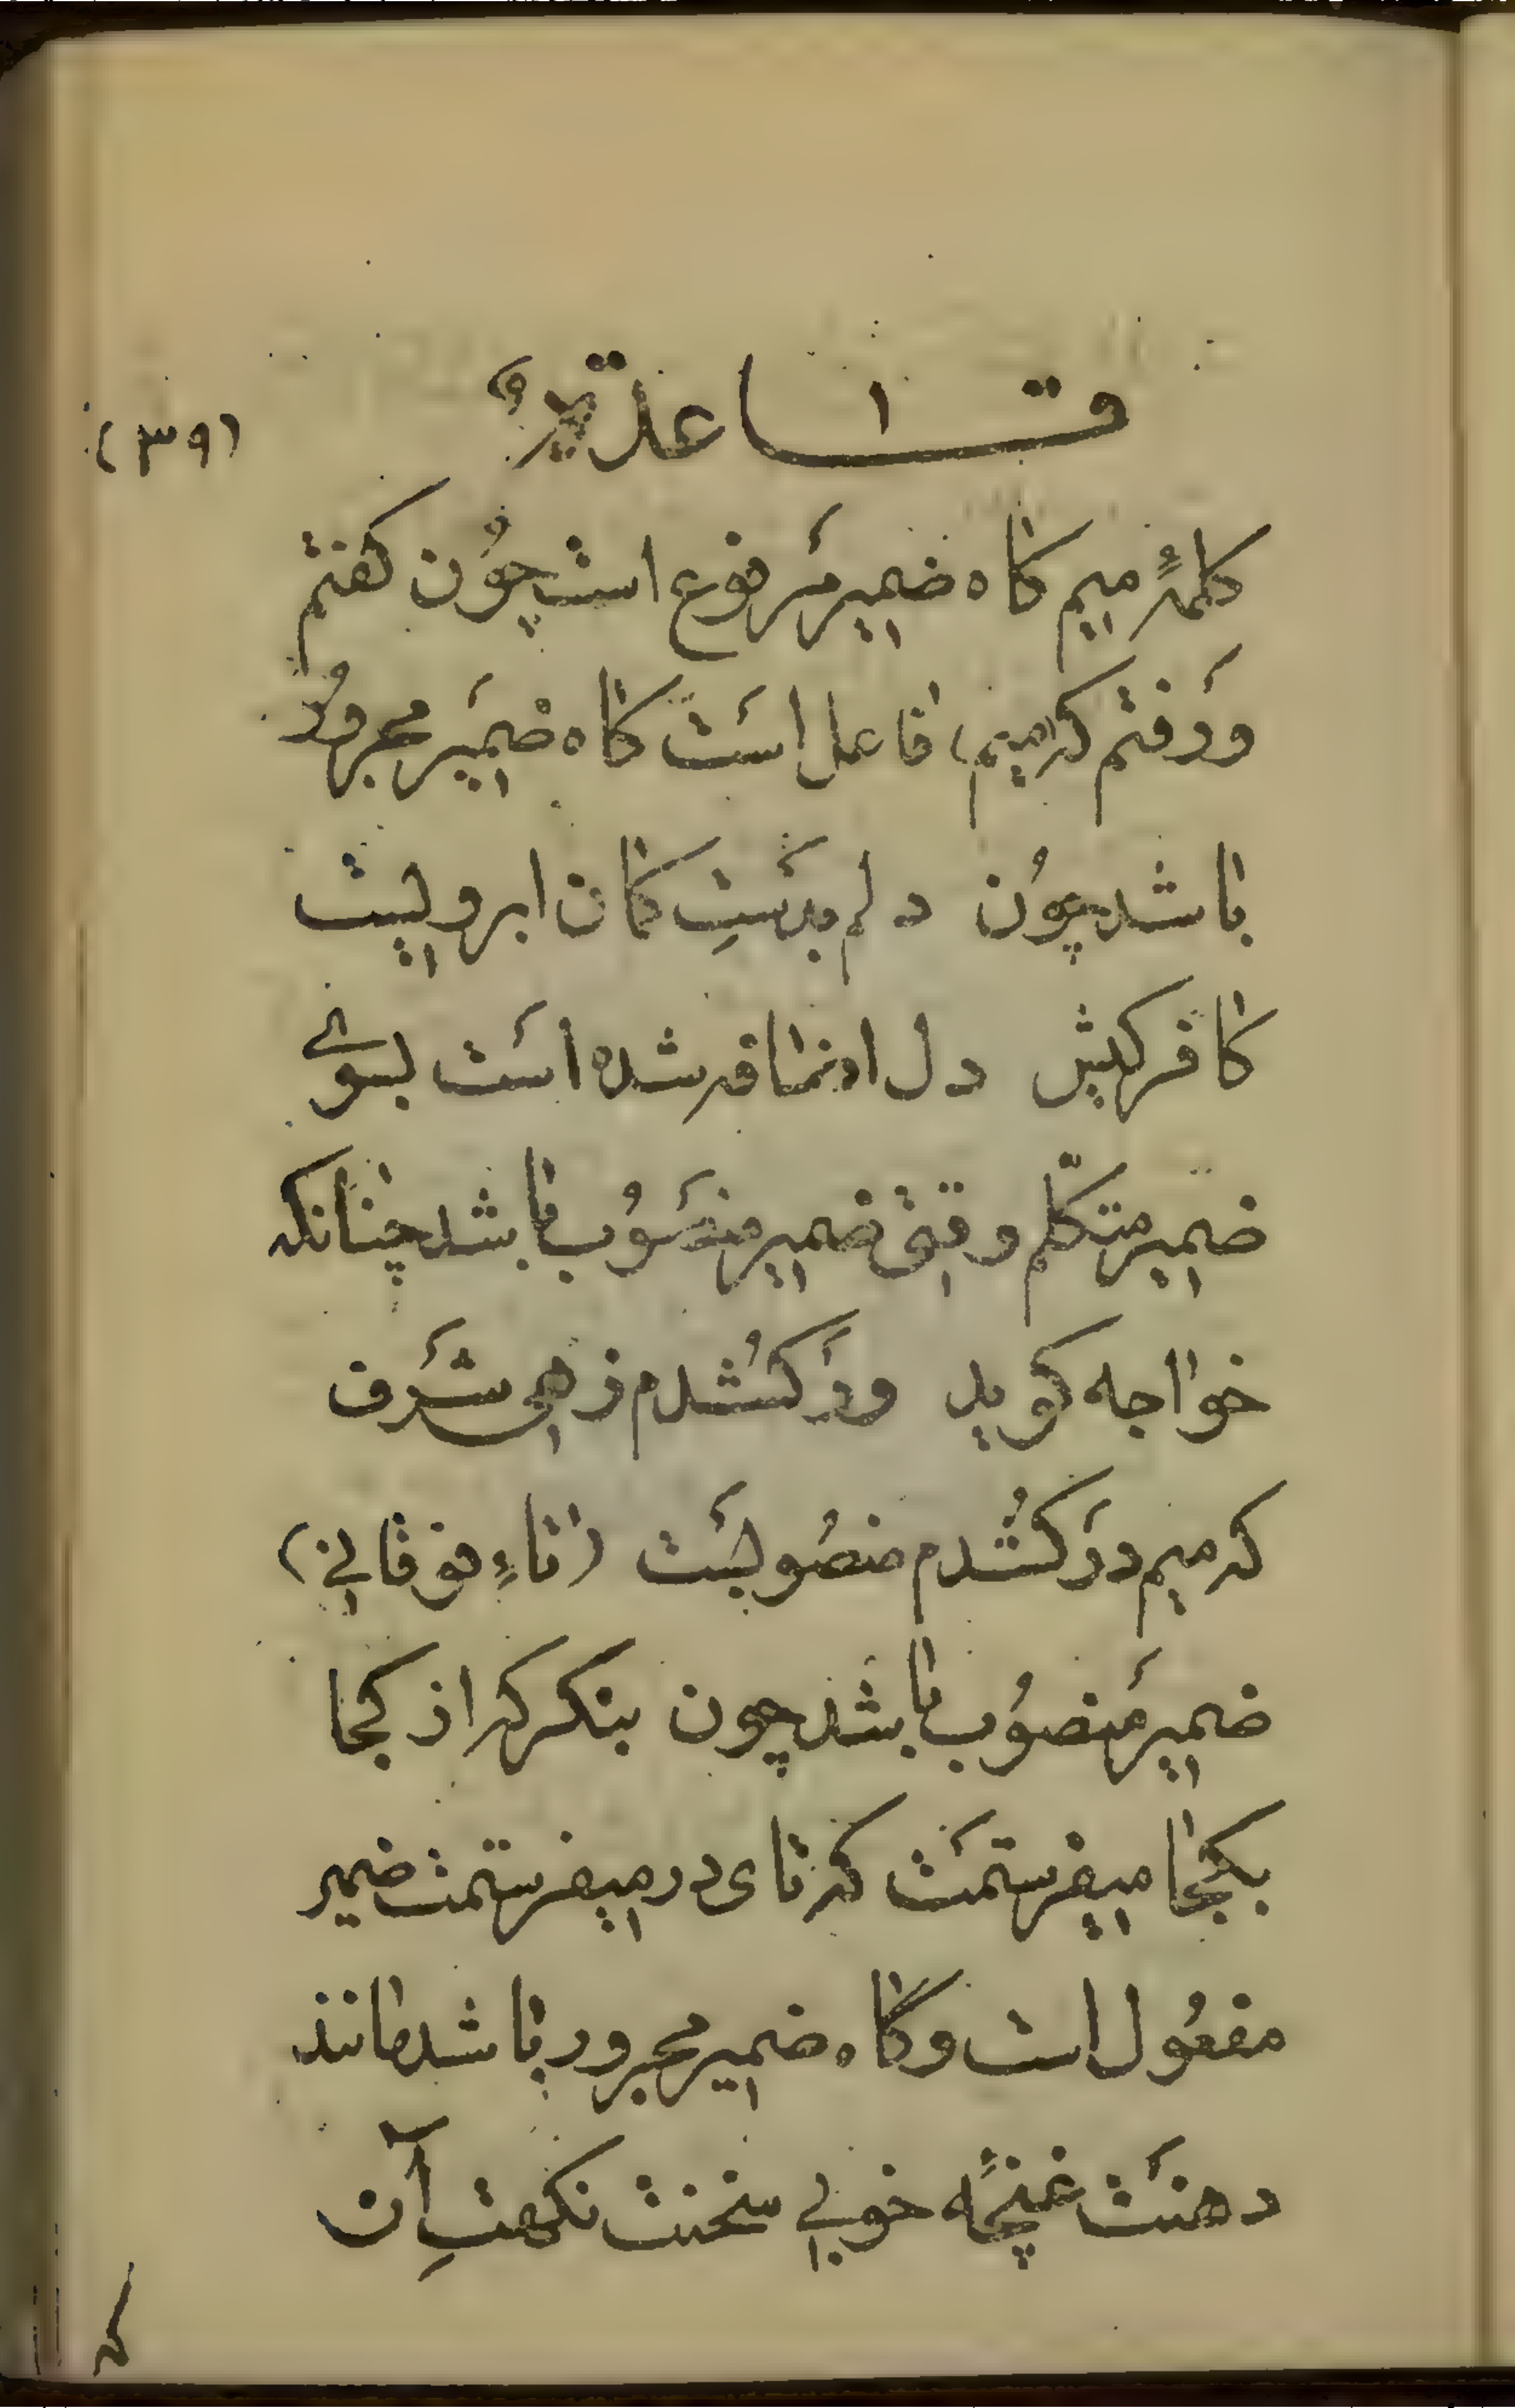 قاعدة
(٣٩)
کلمهٔ میم کاه ضمیر مَرفوع است چوُن کفتم
وَرفتم که (میم) فاعل اسَت کاه ضمَیر مجروُر
باشد چوُن دلم بدَستِ کمان ابرویست
کافرکیش دل اضافه شده اسَت بسوی
ضمیر متکلّم وقتی ضمیر منصَوُب باشد چنانکه
خوااجه کوید ورَ کُشدم زهی شَرف
که میم درَ کُشدم منصُوبسَت (تاءِ فوقانی)
ضمیر مَنصوُب باشد چون بنکر که از کجا
بکجا میفرستمَت که تای در میفرستمت ضمیر
مفعُول است وکاه ضمیر مجرور باشد مانند
دهنَت غنچهٔ خوبی سخنت نکهتِ آن